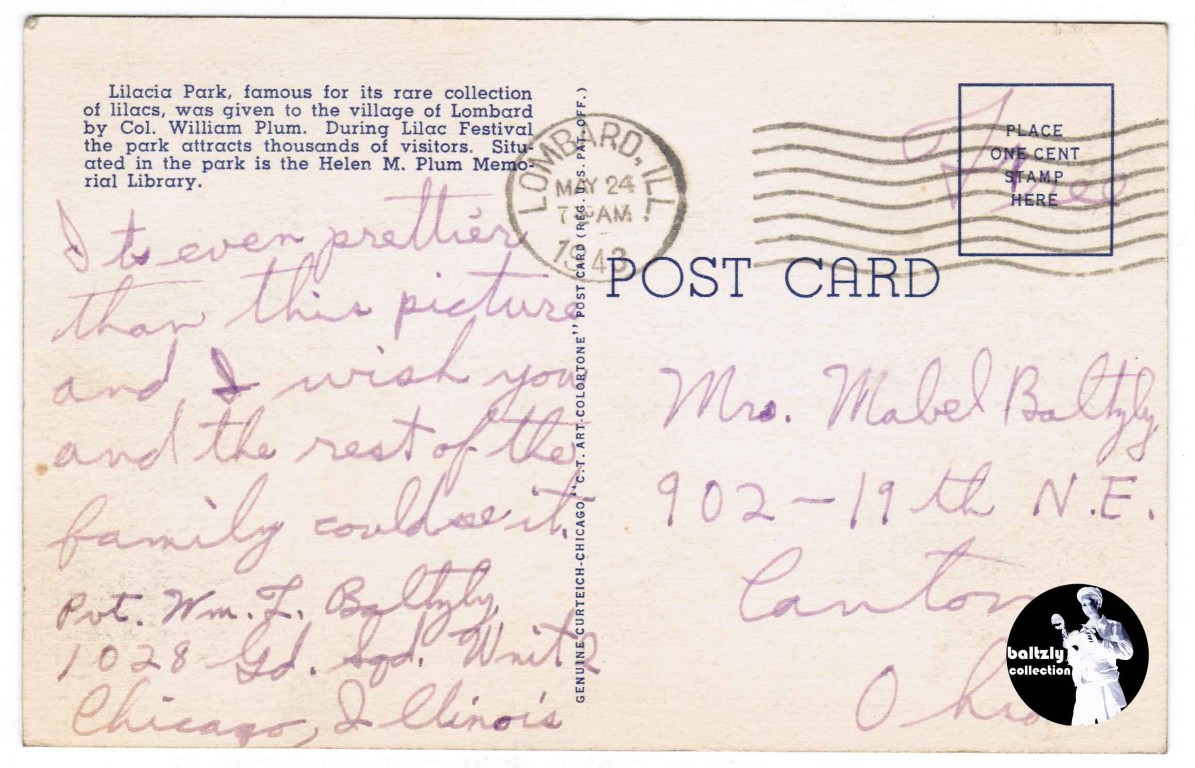 Lilacia Park, famous for its rare collection
of lilacs, was given to the village of Lombard
by Col. William Plum. During Lilac Festival
the park attracts thousands of visitors. Situ-
ated in the park is the Helen M. Plum Memo-
rial Library.
Its even prettier
than this picture
and I wish you
and the rest of the
family could see it.
Pvt. Wm. L. Baltzly,
1028 Gd. Sqd. Unit 2
Chicago, Illinois
GENUINE CURTEICH-CHICAGO "C.T. ART-COLORTONE" POST CARD (REG. U.S. PAT. OFF.)
LOMBARD, ILL.
MAY 24
AM
1943
Free
PLACE
ONE CENT
STAMP
HERE
POST CARD
Mrs. Mabel Baltzly
902-19th N.E.
Canton
Ohio
baltzly
collection